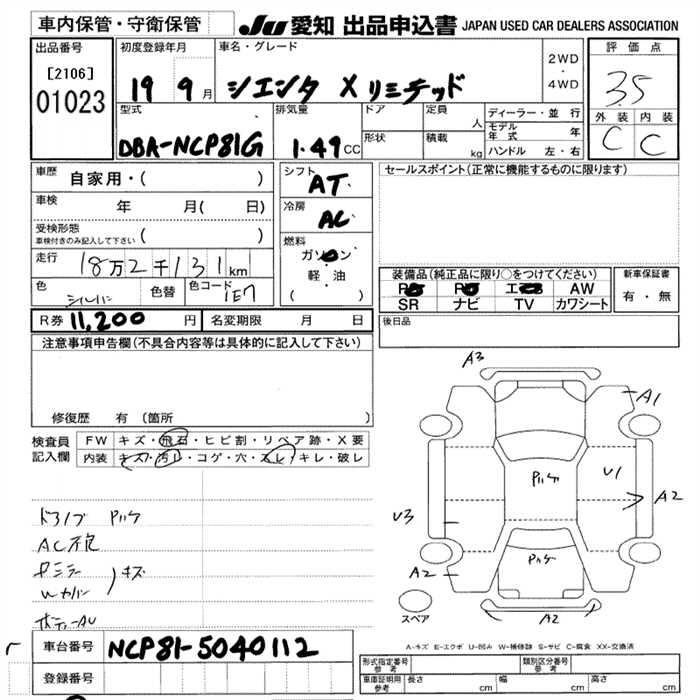 車内保管・守衛保管
JU 愛知 出品申込書 JAPAN USED CAR DEALERS ASSOCIATION
出品番号
[2106]
01023
初度登録年月
19 9月
車名・グレード
シエンタ X リミテッド
2WD
・
4WD
評価点
3.5
外装 内装
C C
型式
DBA-NCP81G
排気量
1.49CC
ドア
形状
定員
人
積載
kg
ディーラー・並行
モデル年式 年
ハンドル 左・右
車歴 自家用・( )
車検 年 月( 日)
受検形態
車検付きのみ記入して下さい ( )
走行 18万2千131km
色 シルバー 色替 色コード 1E7
シフト
AT
冷房
AC
燃料
ガソリン
軽・油
( )
セールスポイント(正常に機能するものに限ります)
装備品(純正品に限り○をつけてください)
AW
SR ナビ TV カワシート
新車保証書
有・無
R券 11,200 円 名変期限 月 日
後日品
注意事項申告欄(不具合内容等は具体的に記入して下さい)
修復歴 有 (箇所 )
検査員記入欄
FW キズ・飛石・ヒビ割・リペア跡・X要
内装 キズ・汚レ・コゲ・穴・スレ・キレ・破レ
A3
A1
Pハゲ
U1
A2
U3
Pハゲ
A2
A2
スペア
AC不良
キズ
Wカバー
車台番号 NCP81-5040112
登録番号
A-キズ E-エクボ U-凹み W-補修跡 S-サビ C-腐食 XX-交換済
形式指定番号 参考
類別区分番号 参考
車庫証明用 参考 長さ cm 幅 cm 高さ cm